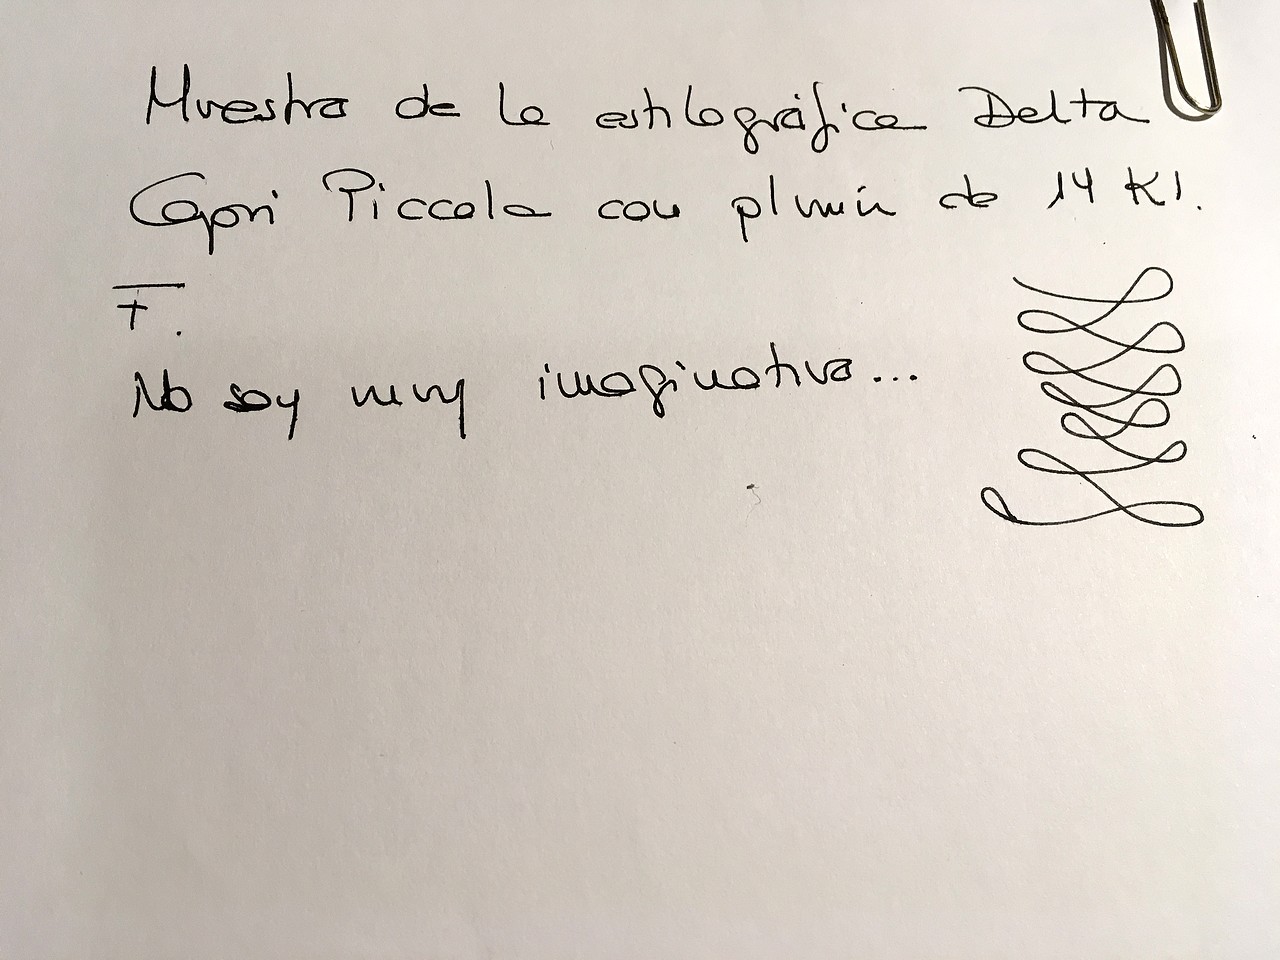 Muestra de la estilográfica Delta
Capri Piccola con plumín de 14 Kl.
F.
No soy muy imaginativa...